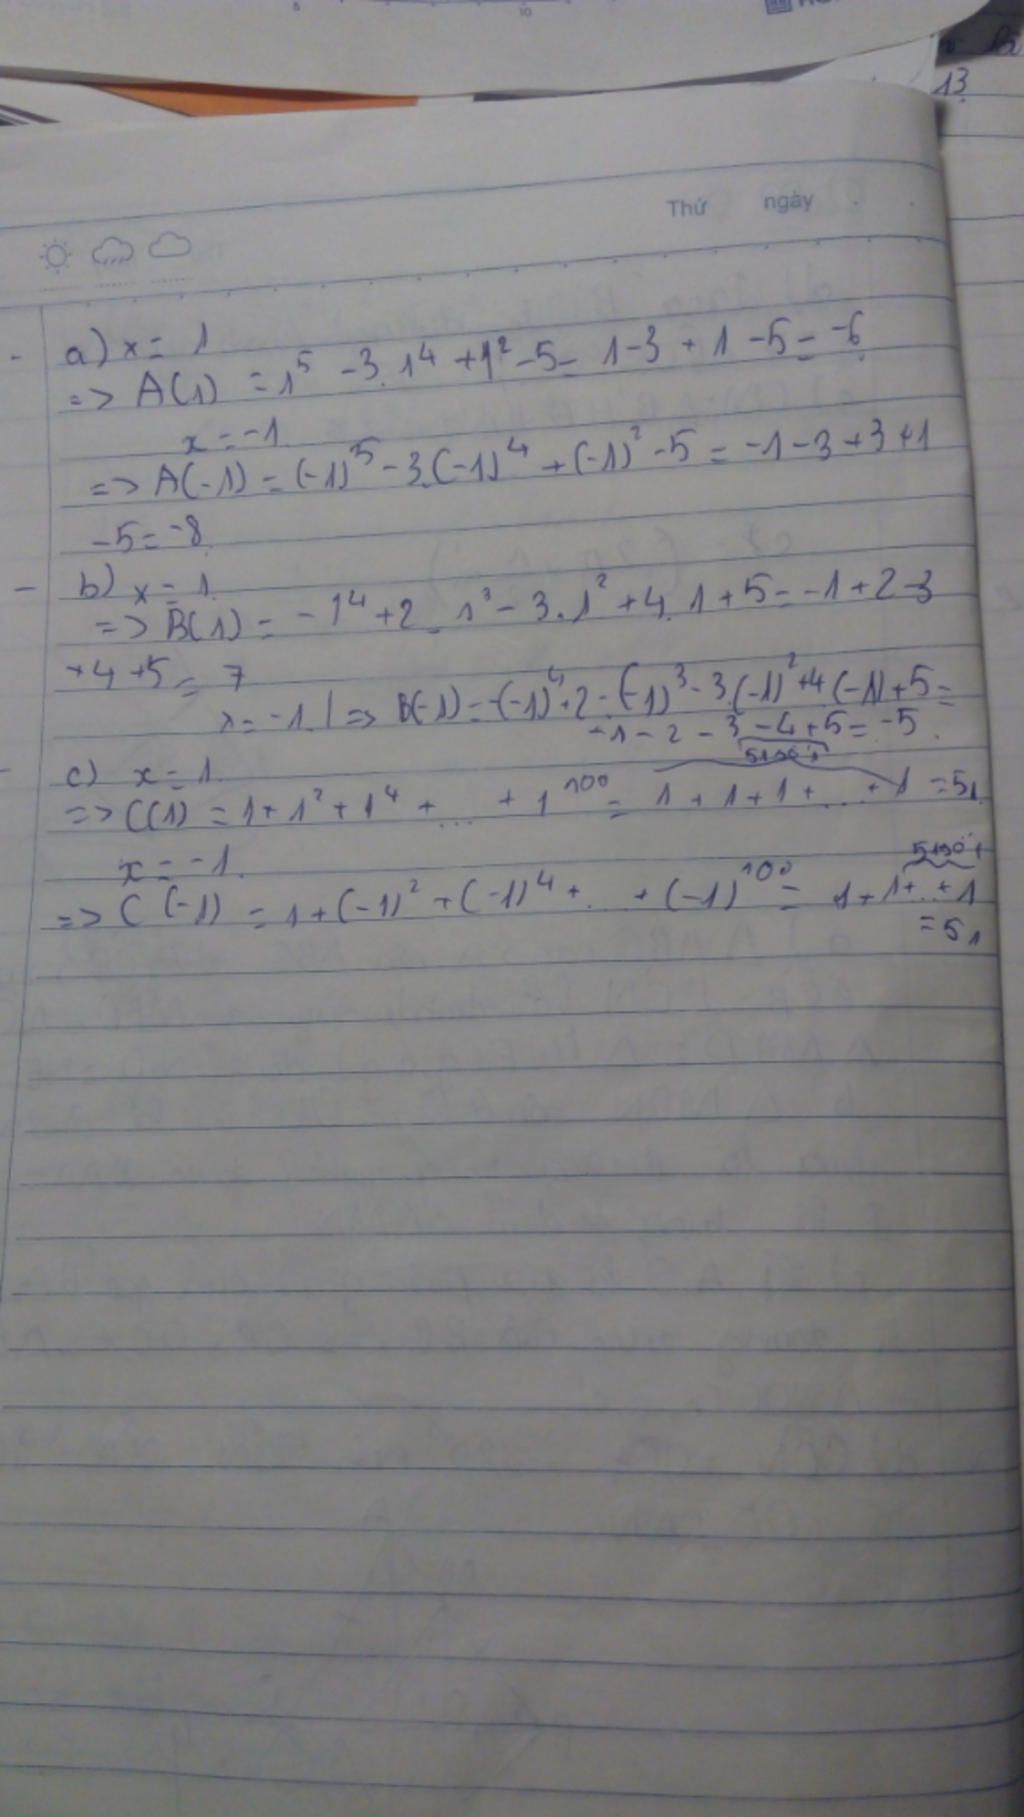 10
13
Thứ ngày
a) x = 1
=> A(1) = 1⁵ - 3. 1⁴ + 1² - 5 = 1 - 3 + 1 - 5 = -6
x = -1
=> A(-1) = (-1)⁵ - 3.(-1)⁴ + (-1)² - 5 = -1 - 3 + 3 + 1
- 5 = -8
b) x = 1
=> B(1) = - 1⁴ + 2 . 1³ - 3 . 1² + 4. 1 + 5 = -1 + 2 - 3
+ 4 + 5 = 7
x = -1 | => B(-1) = -(-1)⁴ + 2 - (-1)³ - 3.(-1)² + 4 (-1) + 5 =
-1 - 2 - 3 - 4 + 5 = -5
c) x = 1
=> C(1) = 1 + 1² + 1⁴ + ... + 1¹⁰⁰ = 1 + 1 + 1 + ... + 1 = 51
x = -1
=> C (-1) = 1 + (-1)² + (-1)⁴ + ... + (-1)¹⁰⁰ = 1 + 1 + ... + 1
= 51